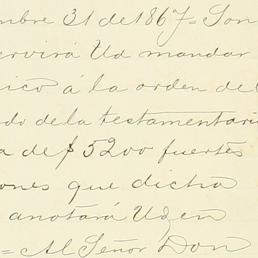 mbre 31 de 1867 = Son
ervirá Ud mandar
ico á la orden del
do de la testamentaria
a de $ 5200 fuertes
ones que dicha
anotará Ud en
= Al Señor Don